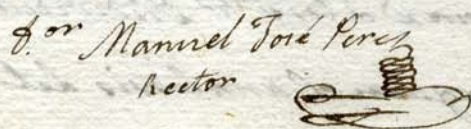 D.or Manuel José Perez
Rector